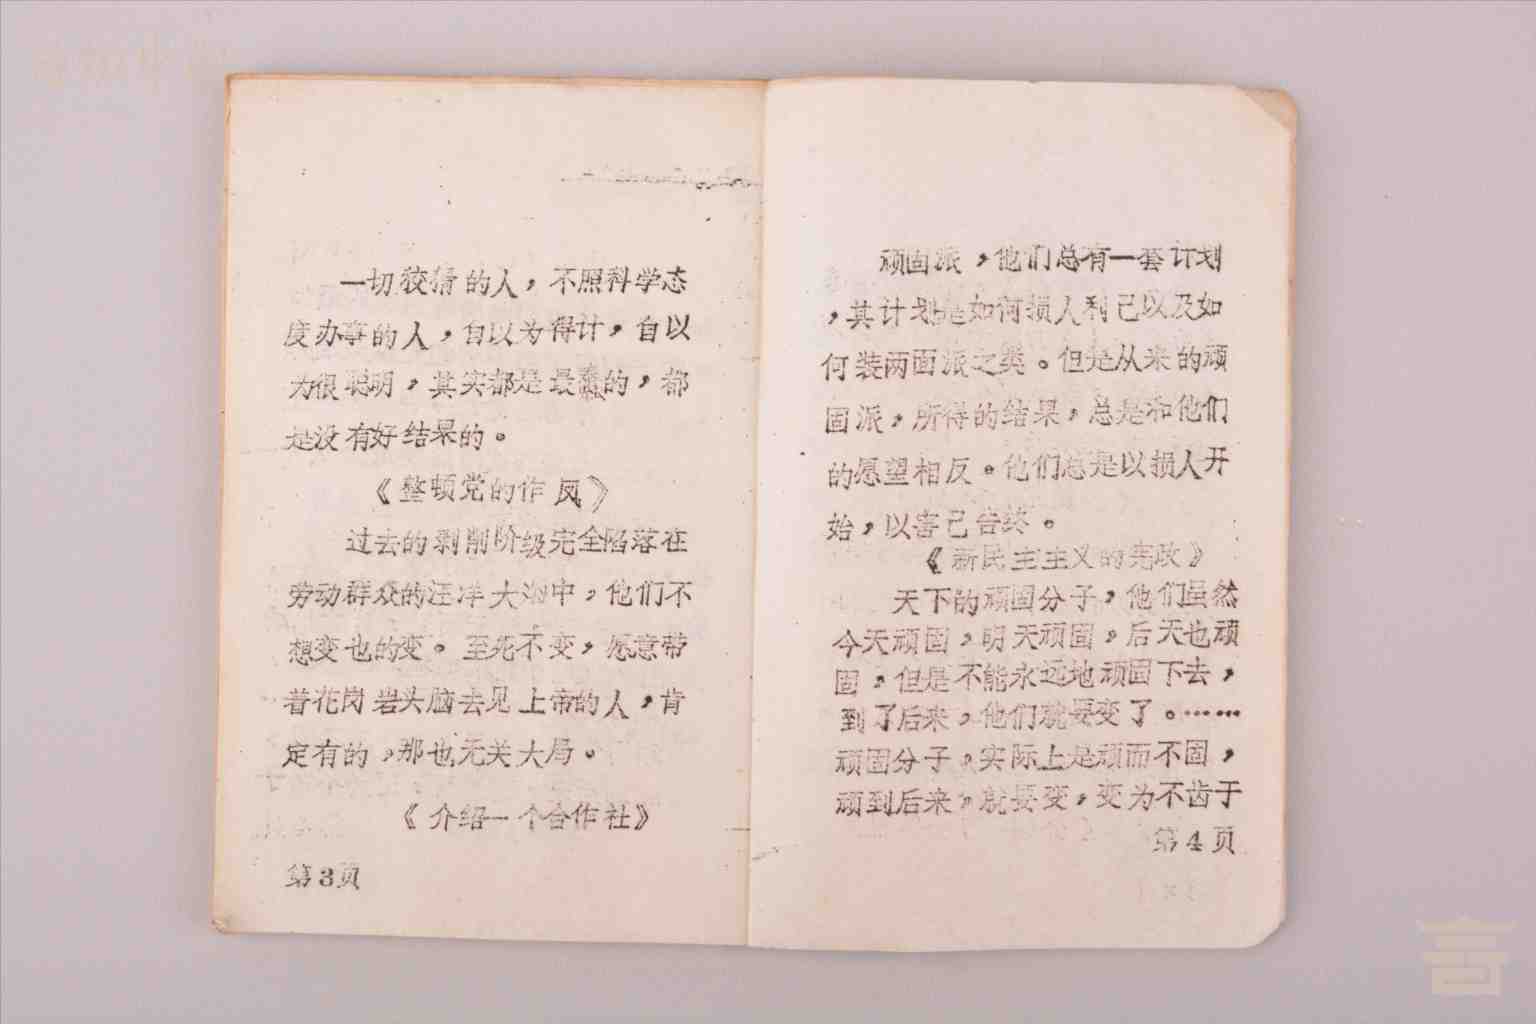 一切狡猾的人，不照科学态
度办事的人，自以为得计，自以
为很聪明，其实都是最蠢的，都
是没有好结果的。
《整顿党的作风》
过去的剥削阶级完全陷落在
劳动群众的汪洋大海中，他们不
想变也的变。至死不变，愿意带
着花岗岩头脑去见上帝的人，肯
定有的，那也无关大局。
《介绍一个合作社》
第3页
顽固派，他们总有一套计划
，其计划是如何损人利己以及如
何装两面派之类。但是从来的顽
固派，所得的结果，总是和他们
的愿望相反。他们总是以损人开
始，以害己告终。
《新民主主义的宪政》
天下的顽固分子，他们虽然
今天顽固，明天顽固，后天也顽
固，但是不能永远地顽固下去，
到了后来，他们就要变了。……
顽固分子，实际上是顽而不固，
顽到后来，就要变，变为不齿于
第4页